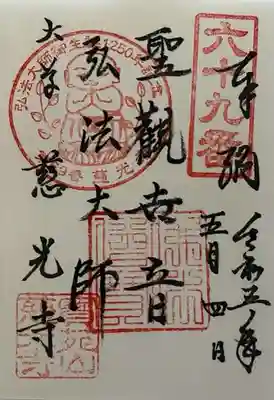 六十九番
奉納
令和五年
五月四日
聖觀世音
弘法大師
大草 慈光寺
弘法大師御生誕1250年記念